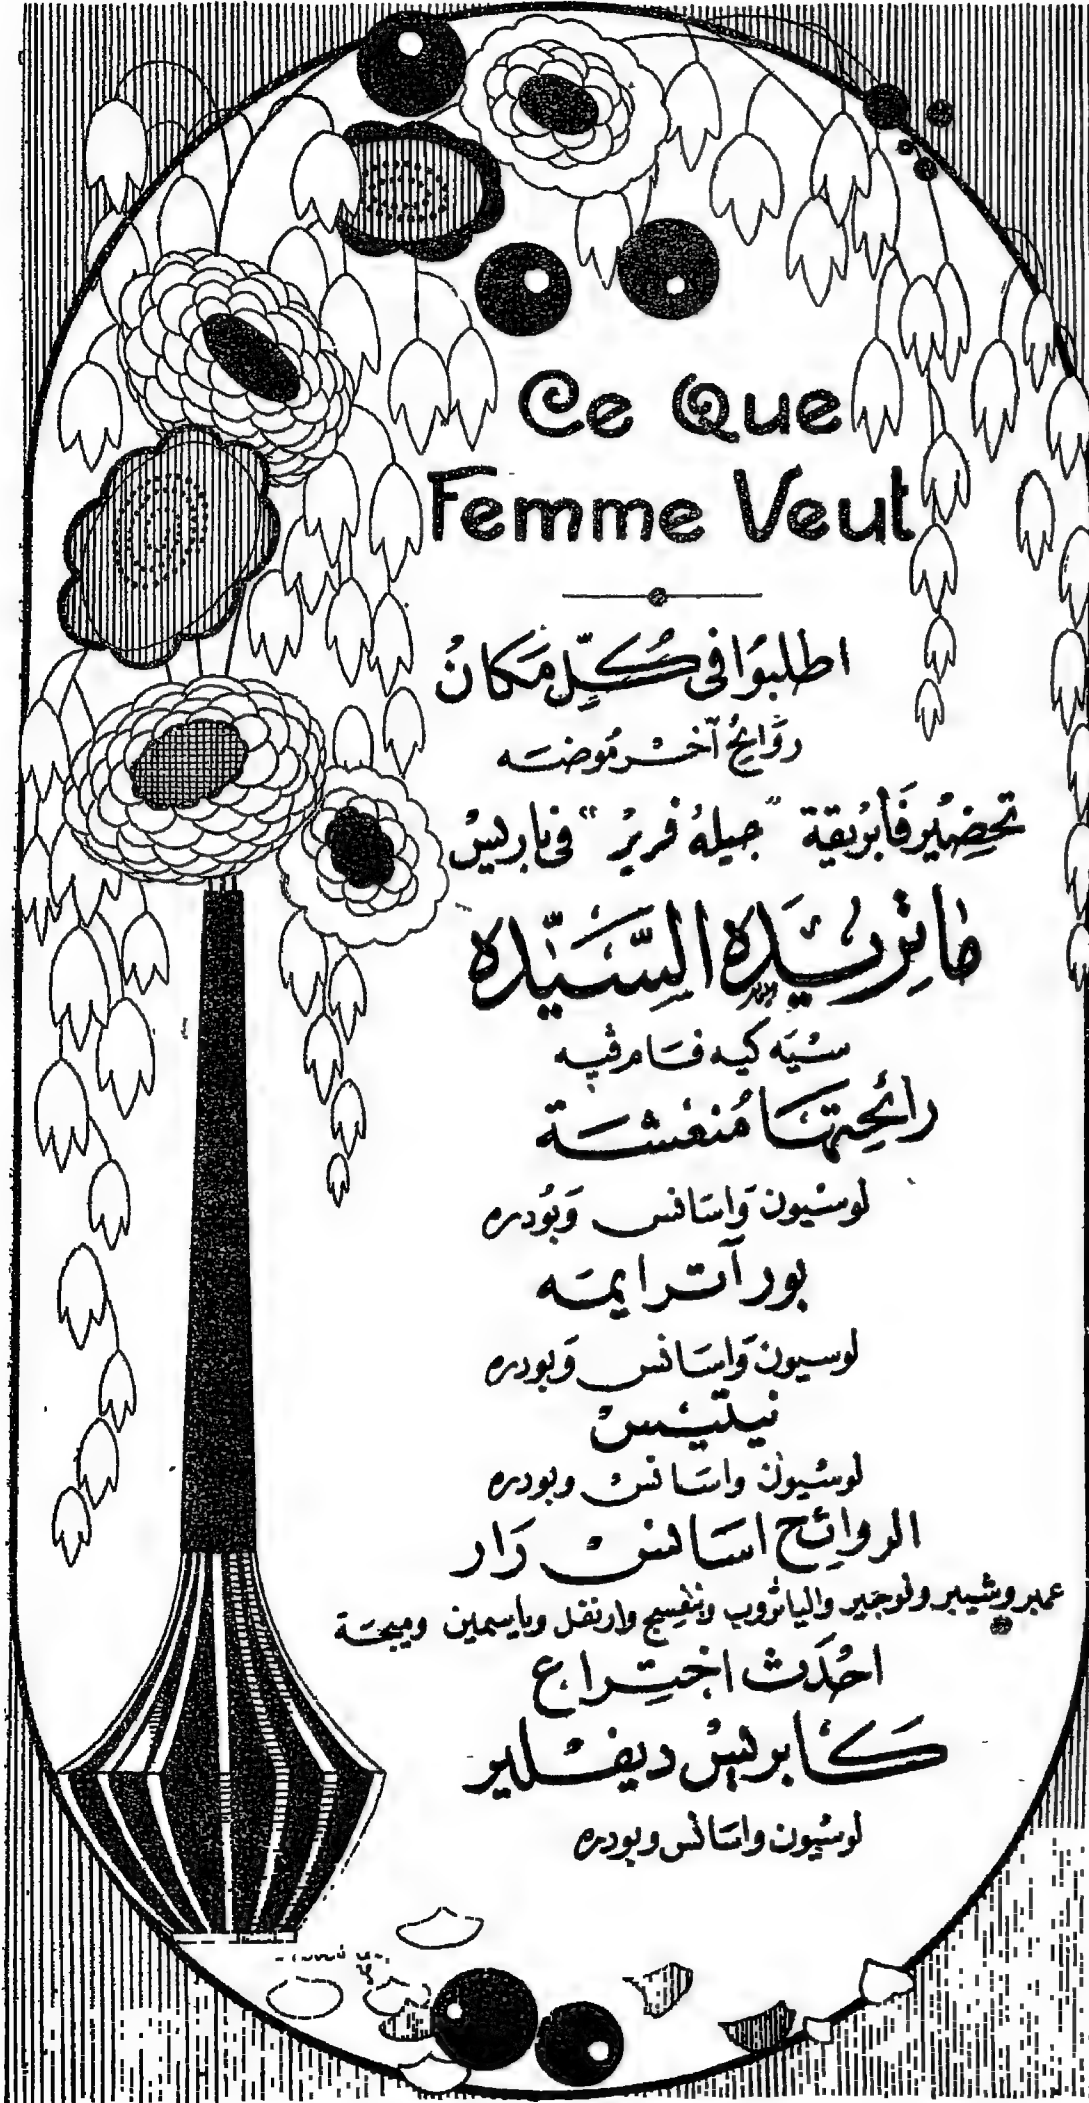 Ce Que
Femme Veut
اطلبوا فى كل مكان
روائح آخر موضه
تحضير فابريقة "جيله فرير" فى باريس
ما تريده السيده
سيه كيه فام فيه
رائحتها منعشة
لوسيون واسانس وبودره
بور آترايمه
لوسيون واسانس وبودره
نيلتيس
لوسيون واسانس وبودره
الروائح اسانس رار
عمبر وشيبر ولوجير والياتروب وبنفسج وارنفل وياسمين وميجة
احدث اختراع
كابريس ديفلير
لوسيون واسانس وبودره